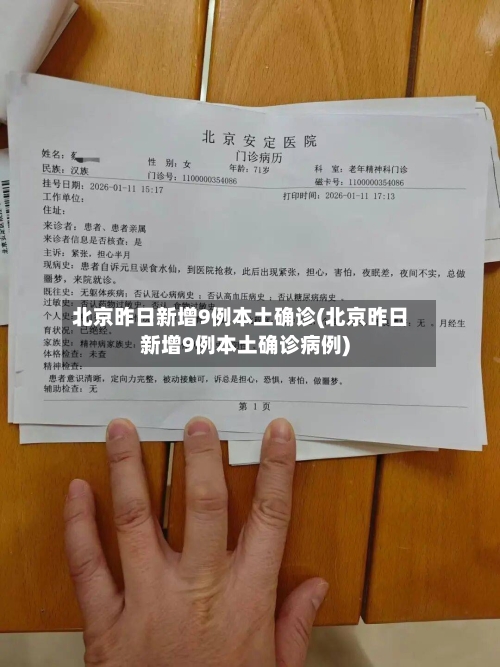 北京安定医院
门诊病历
姓名：
性 别：女
年龄：71岁
科 室：老年精神科门诊
民族：汉族
门诊号：1100000354086
磁卡号：1100000354086
挂号日期：2026-01-11 15:17
打印时间：2026-01-11 17:13
工作单位：
住址：
来诊者：患者、患者亲属
来诊者信息是否核查：是
主诉：紧张，担心半月
现病史：患者自诉元旦误食水仙，到医院抢救，此后出现紧张，担心，害怕，夜眠差，夜间不实，总做
噩梦，来院就诊。
既往史：无躯体疾病；否认冠心病病史 ；否认高血压病史 ；否认糖尿病病史 。
北京昨日新增9例本土确诊(北京昨日
新增9例本土确诊病例)
无 、月经生
家族史：精神病家族史：
体格检查：未查
精神检查：
患者意识清晰，定向力完整，被动接触可，诉总是担心，恐惧，害怕，做噩梦。
辅助检查：无
第 1 页